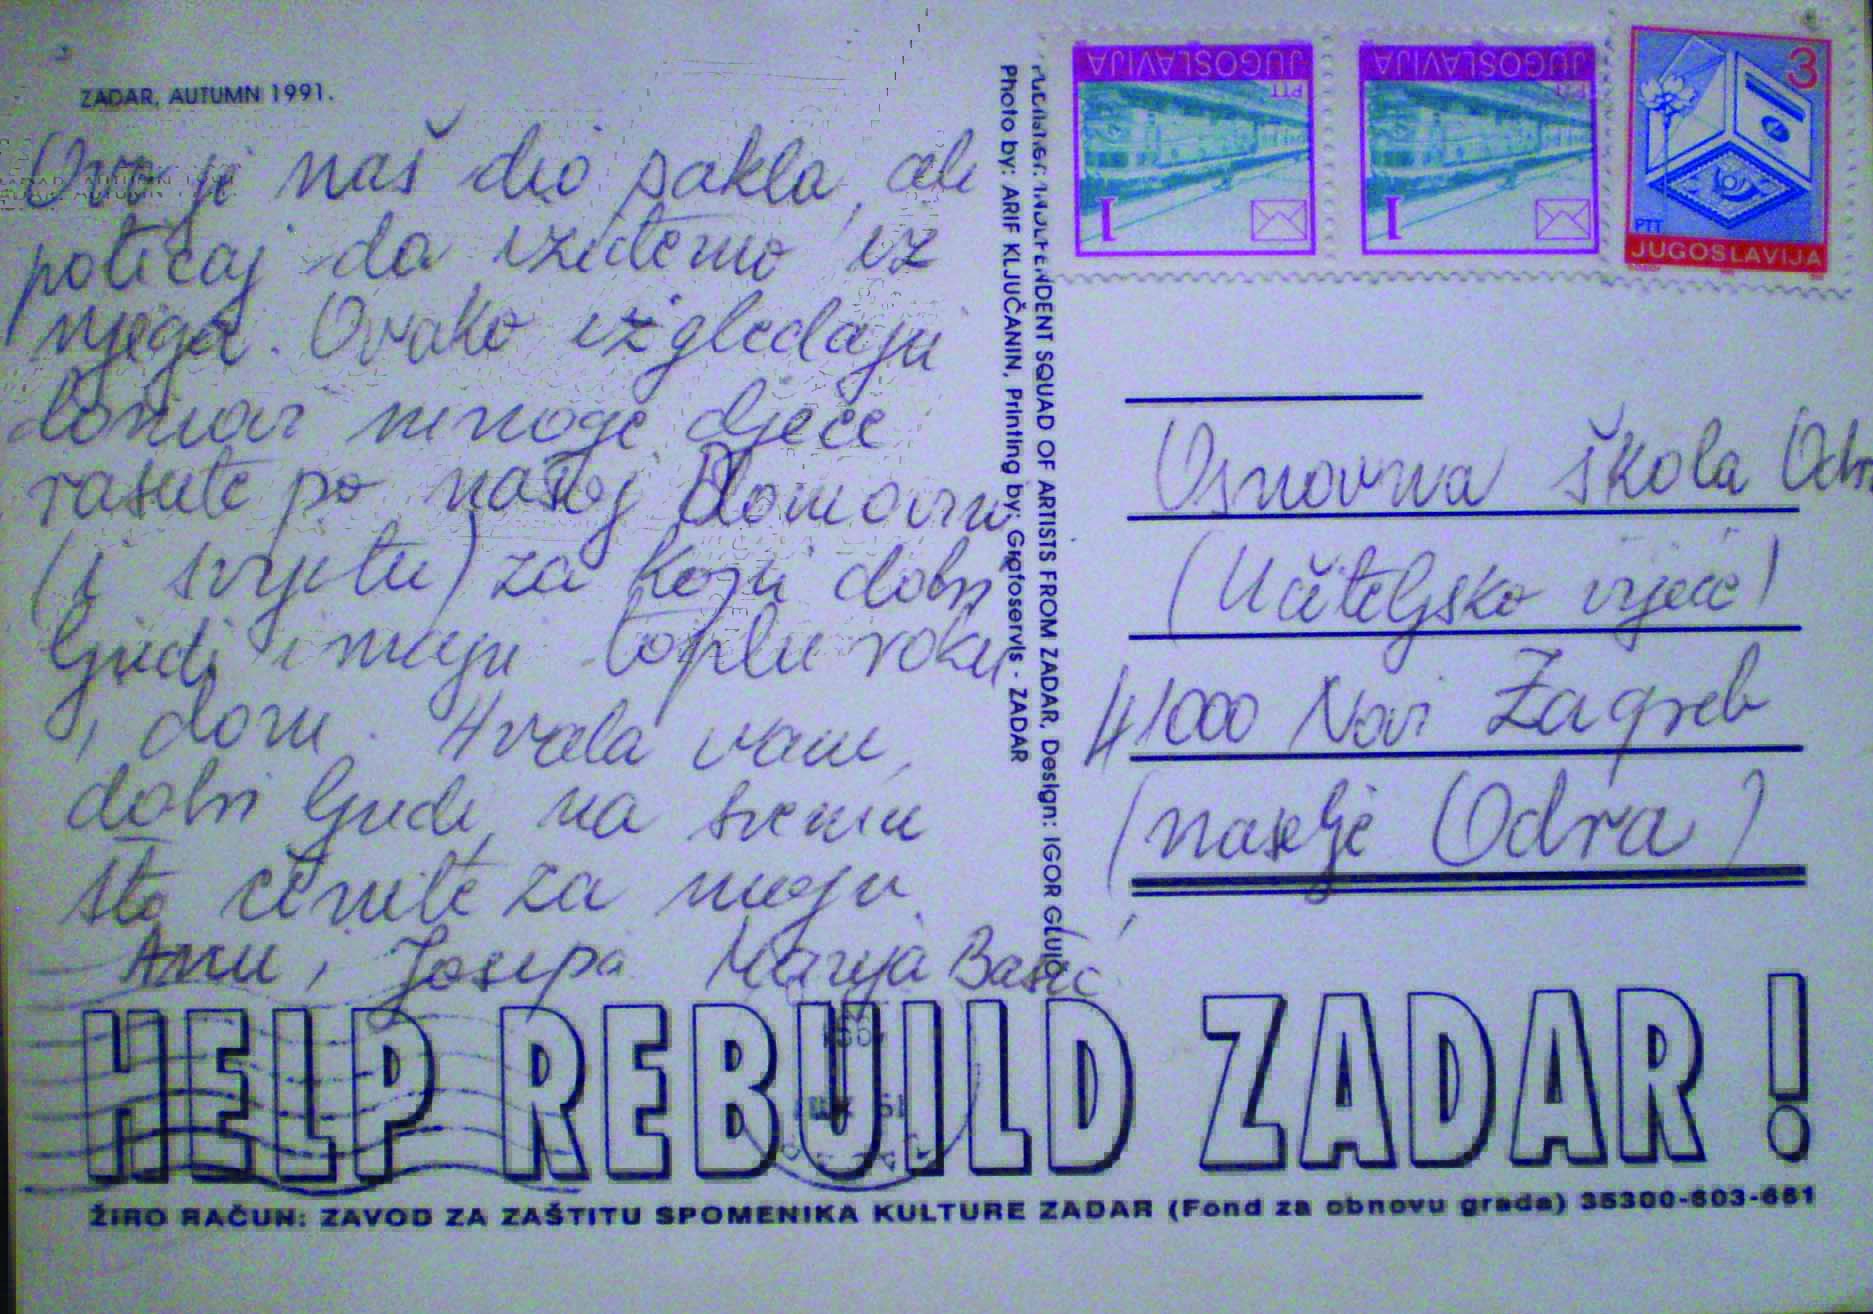 ZADAR, AUTUMN 1991.
Ovo je naš dio pakla, ali
poticaj da iziđemo iz
njega. Ovako izgledaju
domovi mnoge djece
rasute po našoj Domovini
(i svijetu) za koju dobri
ljudi imaju toplu roku
i dom. Hvala vam,
dobri ljudi, na svemu
što činite za moju
Anu, Josipa Marija Bašić
Publisher: INDEPENDENT SQUAD OF ARTISTS FROM ZADAR, Design: IGOR GLUIĆ,
Photo by: ARIF KLJUČANIN, Printing by: Grafoservis - ZADAR
JUGOSLAVIJA
PTT
1
JUGOSLAVIJA
PTT
1
3
PTT
JUGOSLAVIJA
Osnovna škola Odr
(Učiteljsko vijeće)
41000 Novi Zagreb
(naselje Odra)
HELP REBUILD ZADAR !
ŽIRO RAČUN: ZAVOD ZA ZAŠTITU SPOMENIKA KULTURE ZADAR (Fond za obnovu grada) 35300-603-661